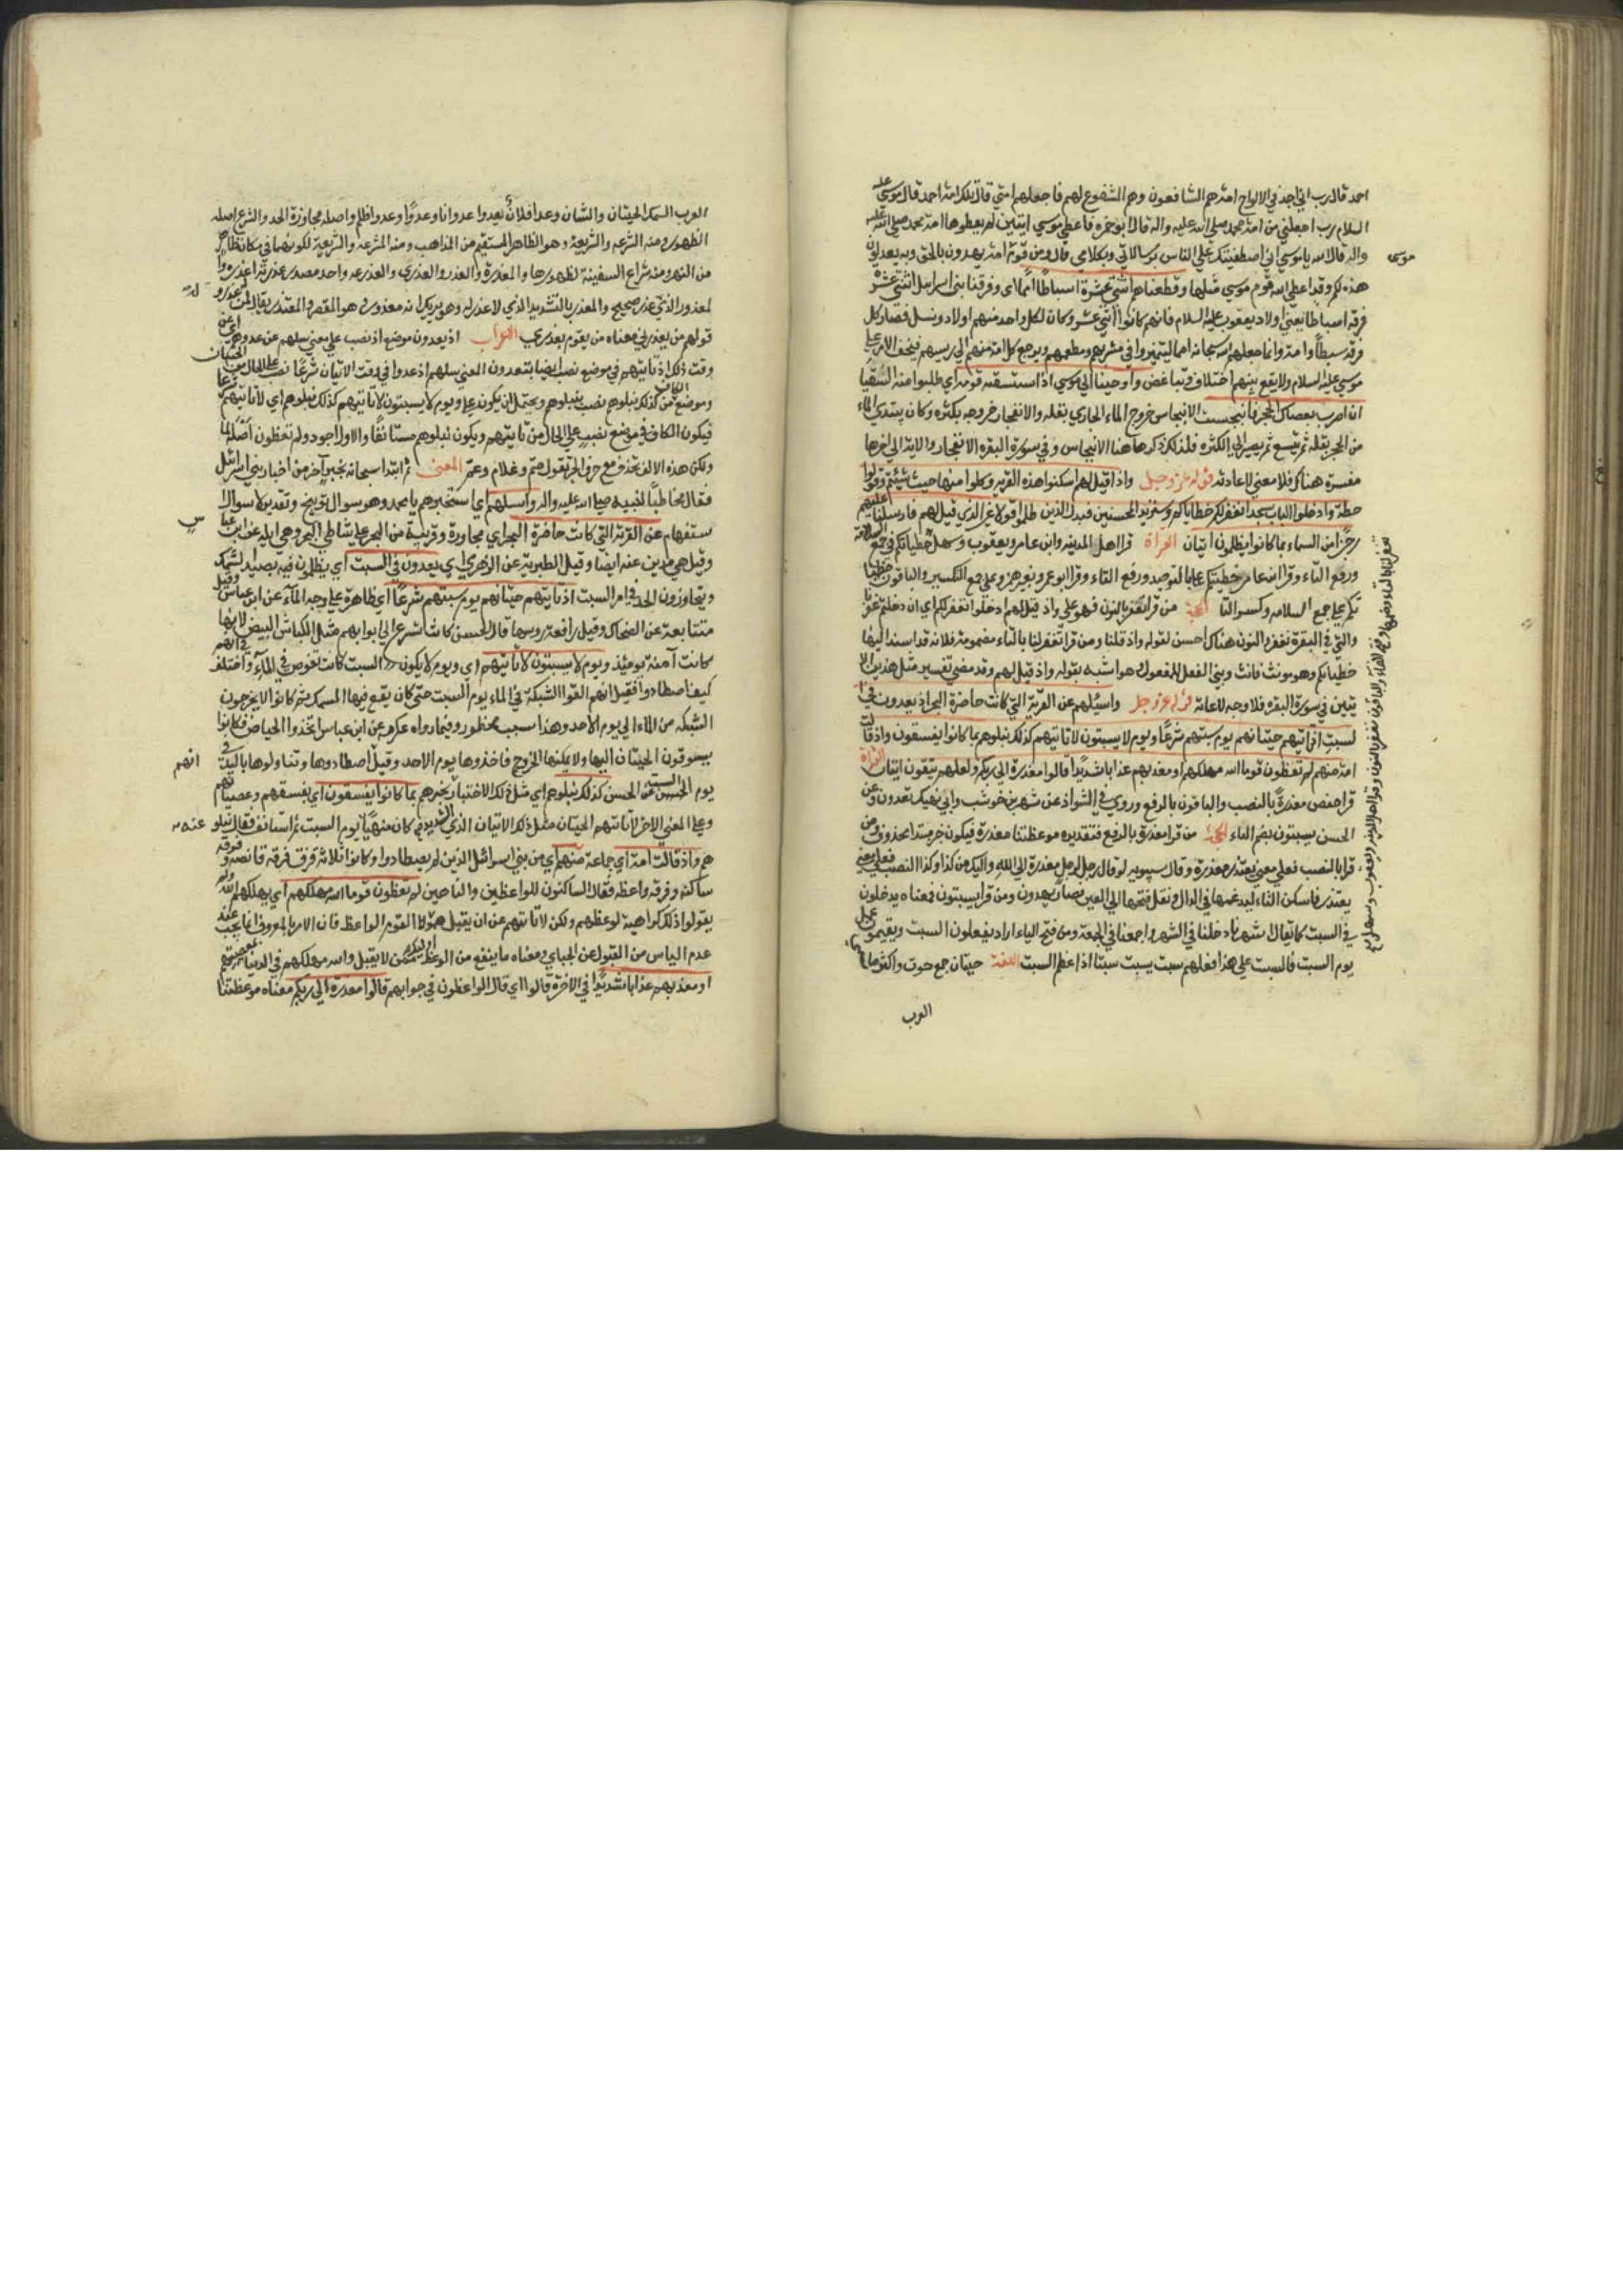 احمد قال رب اني اجد في الالواح امة هم الشافعون وهم المشفوع لهم فاجعلهم امتي قال تلك امة احمد قال موسى عليه
السلام رب اجعلني من امة محمد صلي الله عليه واله قال ابو حمزه فاعطي موسي ايتين لم يعطوها امة محمد صلي الله عليه
واله قال الله يا موسي اني اصطفيتك علي الناس برسالاتي وبكلامي قال ومن قوم امة يهدون بالحق وبه يعدلون
موسى
هذه لكم وقد اعطي الله قوم موسي مثلها وقطعناهم اثنتي عشرة اسباطا امما اي وفرقنا بني اسرايل اثنتي عشرة
فرقه اسباطا يعني اولاد يعقوب عليه السلام فانهم كانوا اثني عشر وكان لكل واحد منهم اولاد ونسل فصار كل
فرقه سبطا وامة وانما جعلهم سبحانه امما ليتميزوا في مشربهم ومطعمهم ويرجع كل امة منهم الي رييسهم فيخف الامر علي
موسي عليه السلام ولا يقع بينهم اختلاف وتباغض واوحينا الي موسي اذ استسقيه قومه اي طلبوا منه السقيا
ان اضرب بعصاك الحجر فانبجست الانبجاس خروج الماء الجاري بقله والانفجار خروجه بكثره وكان يبتدي الماء
من الحجر بقله ثم يتسع ثم يصير الي الكثره فلذلك ذكر هاهنا الانبجاس وفي سورة البقره الانفجار والاية الي اخرها
مفسرة هناك فلا معني لاعادته قوله عز وجل واذ قيل لهم اسكنوا هذه القريه وكلوا منها حيث شيتم وقولوا
حطة وادخلوا الباب سجدا نغفر لكم خطاياكم وسنزيد المحسنين فبدل الذين ظلموا قولا غير الذي قيل لهم فارسلنا عليهم
رجزا من السماء بما كانوا يظلمون ايتان القراة قرا اهل المدينه وابن عامر ويعقوب وسهل خطياتكم في جمع السلامة
ورفع التاء وقرا ابن عامر خطيتكم علي التوحيد ورفع التاء وقرا ابو عمرو بغير همز وعلي جمع التكسير والباقون خطيا
تكم علي جمع السلامه وكسر التا الحجة من قرا نغفر بالنون فهو علي واذ قيل لهم ادخلوا نغفر لكم اي ان دخلتم غفرنا
والتي في البقرة نغفر والنون هناك احسن لقوله واذ قلنا ومن قرا تغفر لنا بالتاء مضمومة فلانه قد اسند اليها
خطياتكم وهو مونث فانث وبني الفعل للمفعول هو اشبه بقوله واذ قيل لهم وقد مضي تفسير مثل هذين الا
يتين في سورة البقره فلا وجه لاعاته قوله عز وجل واسيلهم عن القرية التي كانت حاضرة البحر اذ يعدون في
السبت اذ تاتيهم حيتانهم يوم سبتهم شرعا ويوم لا يسبتون لا تاتيهم كذلك نبلوهم بما كانوا يفسقون واذ قالت
امة منهم لم تعظون قوما الله مهلكهم او معذبهم عذابا شديدا قالوا معذرة الي ربكم ولعلهم يتقون ايتان القراة
قرا حفص معذرة بالنصب والباقون بالرفع وروي في الشواذ عن شهر بن خوشب وابي نهيك يعدون وعن
الحسن يسبتون بضم الياء الحجة من قرا معذرة بالرفع فتقديره موعظتنا معذرة فيكون خبر مبتدا محذوف ومن
قرا بالنصب فعلي معني نعتذر معذرة وقال سيبويه لو قال رجل لرجل معذرة الي الله واليك من كذا وكذا لنصب
يعتذر فاسكن التاء ليدغمها في الدال ونقل فتحها الي العين فصار يعدون ومن قرا يسبتون فمعناه يدخلون
في السبت كما يقال اشهرنا دخلنا في الشهر واجمعنا في الجمعة ومن فتح الياء اراد يفعلون السبت ويقيمون عمل
يوم السبت فالسبت علي هذا فعلهم سبت يسبت سبتا اذا عظم السبت اللغة حيتان جمع حوت واكثر ما
العرب
العرب السمك الحيتان والنينان وعدا فلان يعدوا عدوانا وعدوا وعدوا ظلم واصله مجاوزة الحد والشرع اصله
الظهور ومنه الشرعه والشريعة وهو الظاهر المستقيم من المذاهب ومنه المشرعه والشريعة لكونهما في مكان ظاهر
من النهر ومنه شراع السفينة لظهورها والمعذرة والعذر والعذري والعذرة واحد مصدر عذرته اعذره
المعذور الذي عذر صحيح والمعذر بالتشديد الذي لا عذر له وهو يريك انه معذور هو المقصر والمعتذر يقال لمن
قولهم من يعذرني معناه من يقوم بعذري الاعراب اذ يعدون موضع اذ نصب علي معني سلهم عن عدوهم اي عن
وقت ذلك اذ تاتيهم في موضع نصب ايضا بيتعدون المعني سلهم اذ عدوا في وقت الاتيان شرعا نصب علي الحال من الحيتان
وموضع الكاف من كذلك نبلوهم نصب بنبلوهم ويحتمل ان يكون علي ويوم لا يسبتون لا تاتيهم كذلك نبلوهم اي لا تاتيهم شرعا
فيكون الكاف في موضع نصب علي الحال من تاتيهم ويكون نبلوهم مستانفا والاول اجود ولم تعظون اصله لما
ولكن هذه الالف تحذف مع حرف الجر تقول فيم وعلام وعم المعني ثم ابتدا سبحانه بخبر آخر من اخبار بني اسرائيل
فقال مخاطبا لنبيه صلي الله عليه واله واسيلهم اي استخبرهم يا محمد وهو سوال توبيخ وتقرير لا سوال ا
ستفهام عن القرية التي كانت حاضرة البحر اي مجاورة وقريبة من البحر علي شاطي البحر وهي ايلة عن ابن عباس
وقيل هي مدين عنه ايضا وقيل الطبرية عن الزهري اي يعدون في السبت اي يظلمون فيه بصيد السمك
ويتجاوزون الحد في امر السبت اذ تاتيهم حيتانهم يوم سبتهم شرعا اي ظاهرة علي وجه الماء عن ابن عباس وقيل
متتابعة عن الضحاك وقيل رافعة روسها قال الحسن كانت تشرع الي ابوابهم مثل الكباش البيض لانها
كانت آمنة يوميذ ويوم لا يسبتون لا تاتيهم اي ويوم لا يكون السبت كانت تغوص في الماء واختلف في انهم
كيف اصطادوا فقيل انهم القوا الشبكة في الماء يوم السبت حتي كان يقع فيها السمك ثم كانوا لا يخرجون
الشبكه من الماء الي يوم الاحد وهذا سبب محظور وفيما رواه عكرمه عن ابن عباس اتخذوا الحياض فكانوا
يسوقون الحيتان اليها ولا يمكنها الخروج فاخذوها يوم الاحد وقيل اصطادوها وتناولوها باليد في
انهم
يوم السبت عن الحسن كذلك نبلوهم اي مثل ذلك الاختبار نختبرهم بما كانوا يفسقون اي بفسقهم وعصيانهم
وعلي المعني الاخر لا تاتيهم الحيتان مثل ذلك الاتيان الذي كان منها يوم السبت ثم استانف فقال نبلو
عنه
هم واذ قالت امة اي جماعة منهم اي من بني اسرائيل الذين لم يصطادوا وكانوا ثلاثة فرق فرقه قانصه وفرقه
ساكته وفرقه واعظه فقال الساكتون للواعظين والناهين لم تعظون قوما الله مهلكهم اي يهلكهم الله ولم
يقولوا ذلك كراهية لوعظهم ولكن لاياسهم عن ان يقبل هولا القوم الوعظ فان الامر بالمعروف انما يجب عند
عدم الياس من القبول عن الجبايي ومعناه ما ينفع من الوعظ ممن لا يقبل والله مهلكهم في الدنيا بمعصيتهم
او معذبهم عذابا شديدا في الاخرة قالوا اي قال الواعظون في جوابهم قالوا معذرة الي ربكم معناه موعظتنا